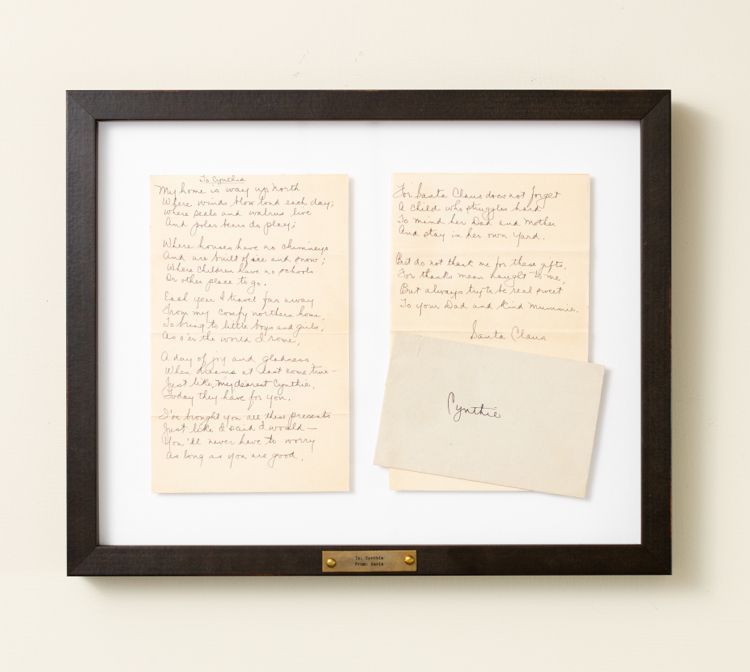 To Cynthia
My home is way up north
Where winds blow loud each day;
Where seals and walrus live
And polar bears do play;
Where houses have no chimneys
And are built of ice and snow;
Where children have no schools
Or other place to go.
Each year I travel far away
From my comfy northern home,
To bring to little boys and girls,
As o'er the world I rome,
A day of joy and gladness
When dreams at last come true—
Just like, my dearest Cynthie,
Today they have for you.
I've brought you all these presents
Just like I said I would—
You'll never have to worry
As long as you are good.
For Santa Claus does not forget
A child who struggles hard
To mind her Dad and Mother
And stay in her own yard.
But do not thank me for these gifts,
For thanks mean naught to me,
But always try to be real sweet
To your Dad and kind Mummie.
Santa Claus
Cynthie
To: Cynthia
From: Santa